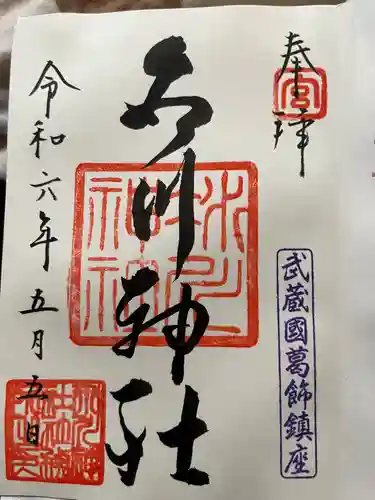 奉拝
武蔵國葛飾鎮座
氷川神社
令和六年五月五日